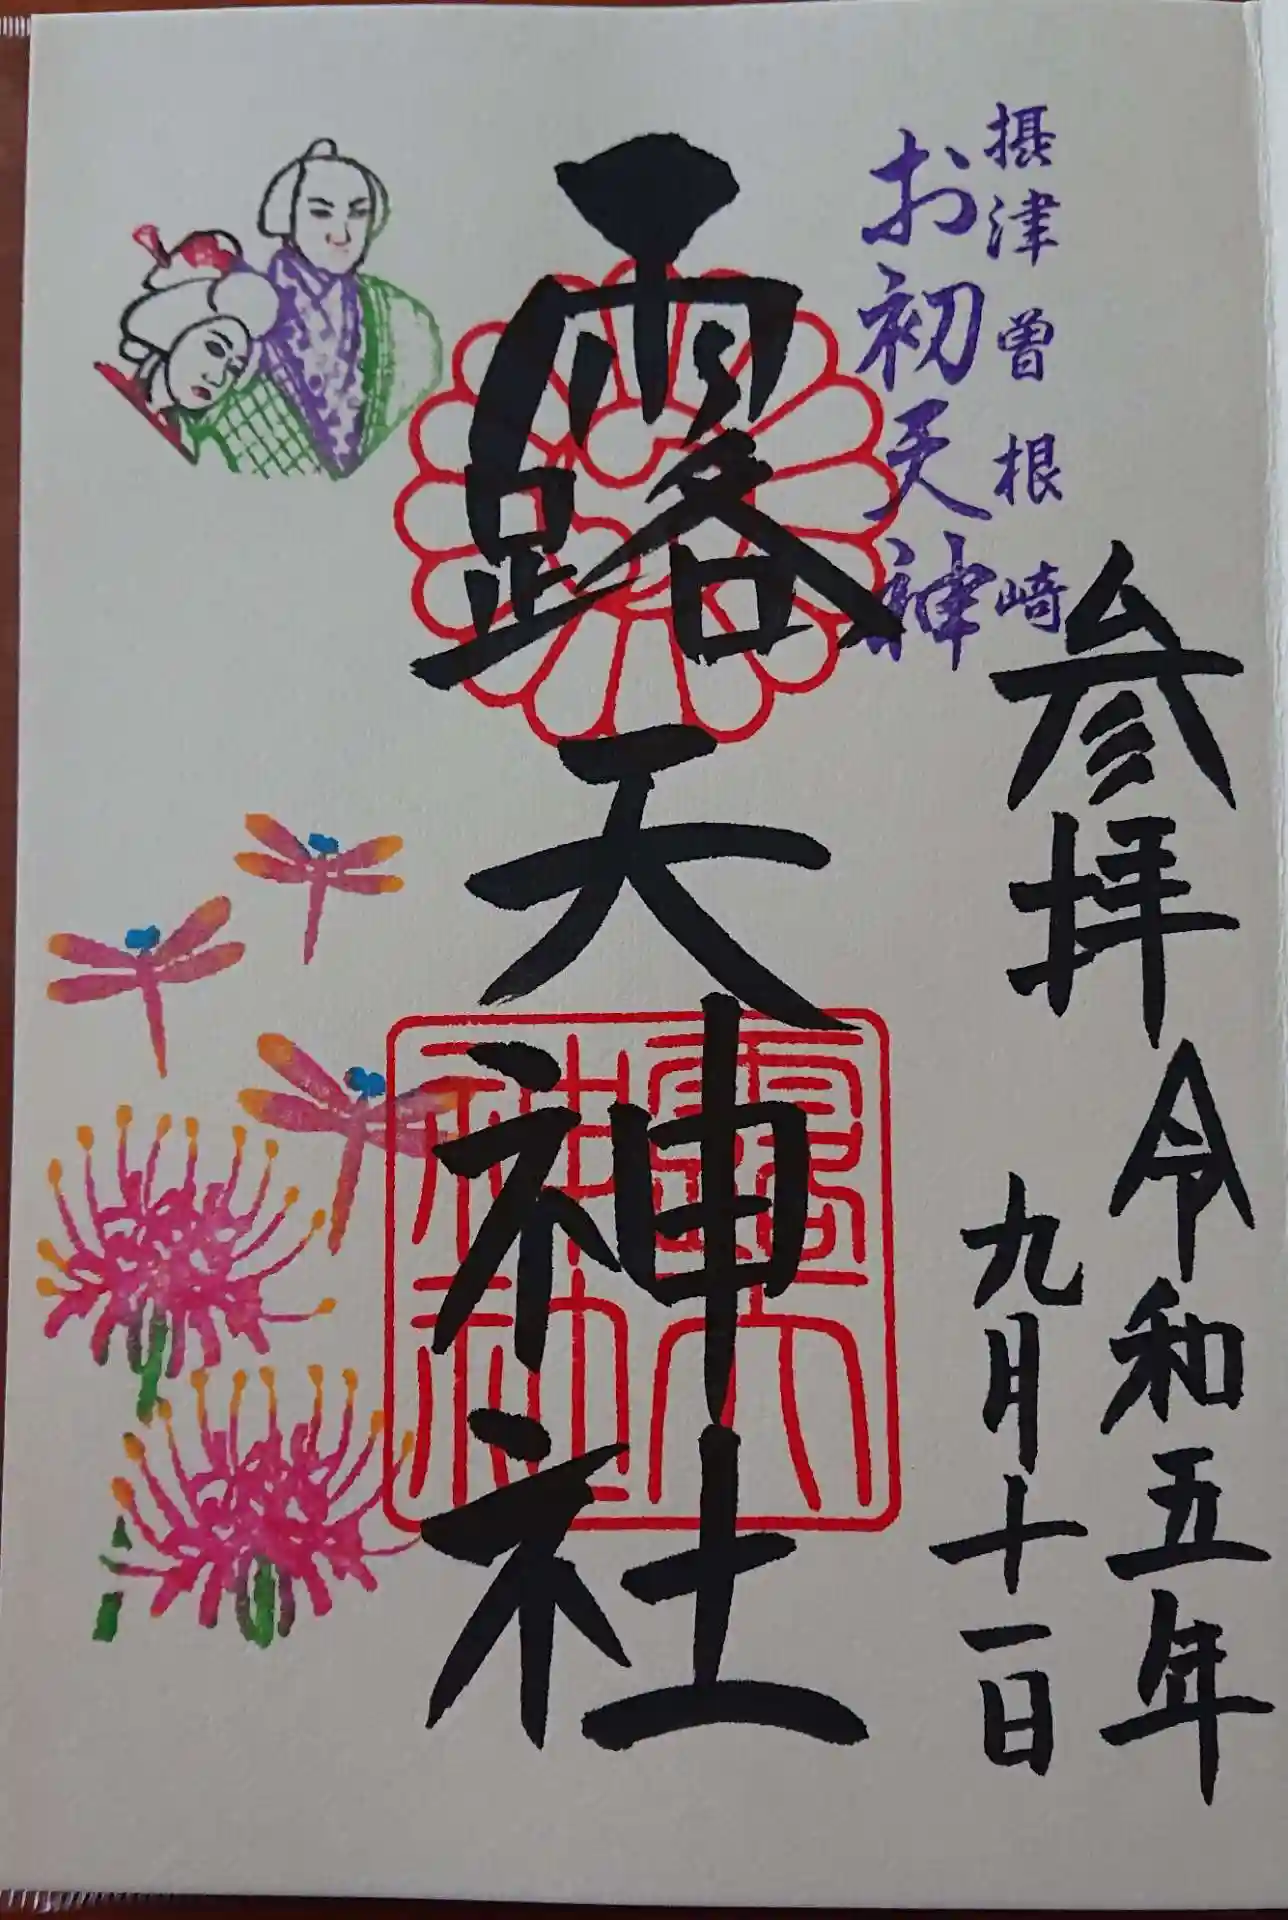 参拝 令和五年
九月十一日
摂津曽根崎
お初天神
露天神社
露天
神社